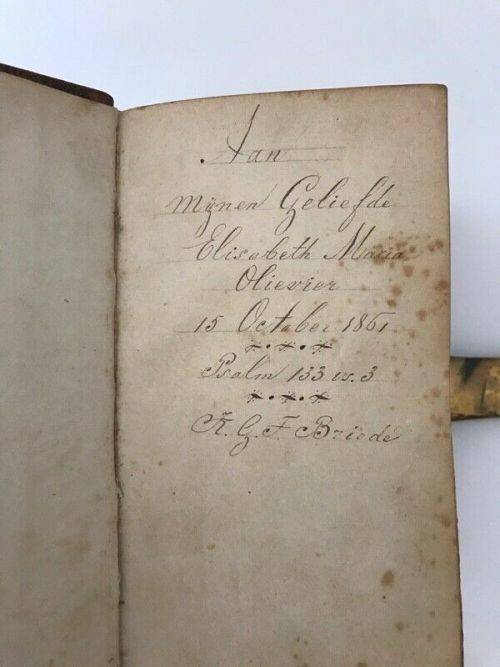 Aan
mijnen Geliefde
Elisabeth Maria
Olievier
15 October 1861
Psalm 133 vs. 3
K. G. F. Briodé